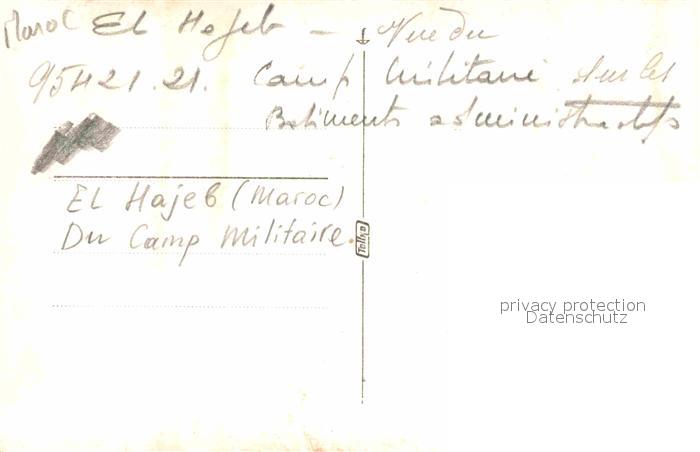 Maroc El Hajeb — Vue du
95421.21. Camp Militaire sur les
Batiments administratifs
El Hajeb (Maroc)
Du Camp Militaire.
Telko
privacy protection
Datenschutz